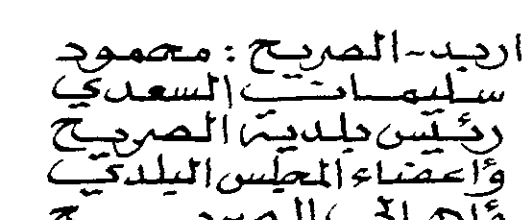 اربد-الصريح : محمود
سليمان السعدي
رئيس بلدية الصريح
وأعضاء المجلس البلدي
وأهالي الصريح